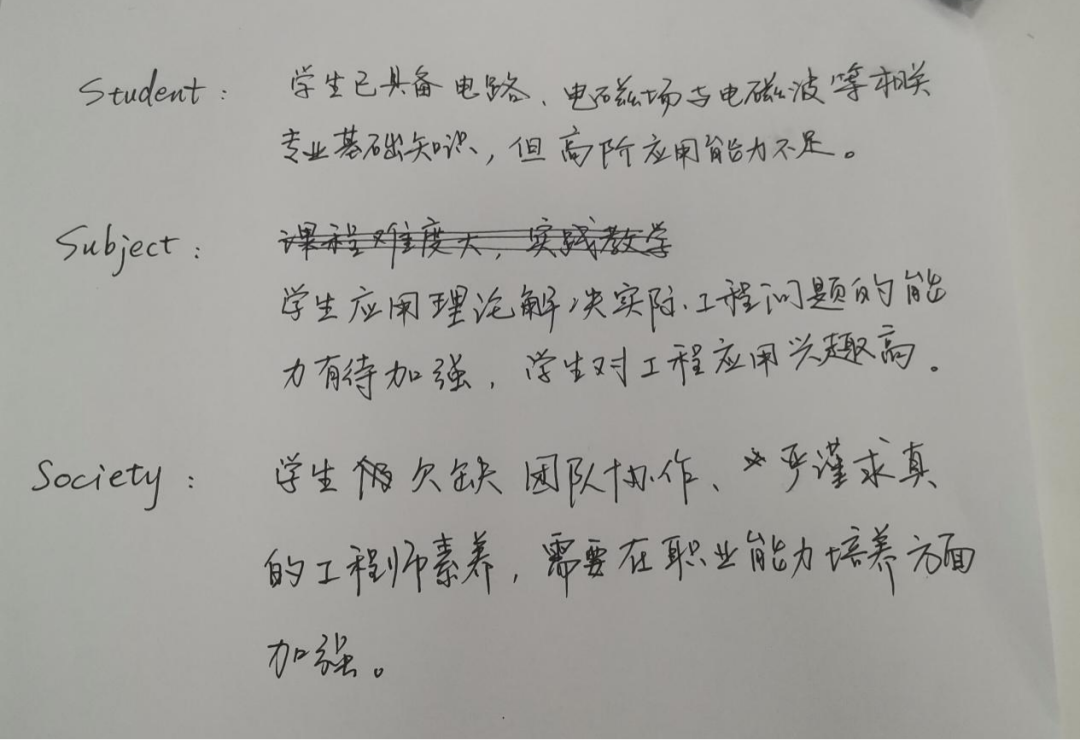 Student: 学生已具备电路、电磁场与电磁波等相关
专业基础知识,但高阶应用能力不足。
Subject: 课程难度大,实践教学
学生应用理论解决实际工程问题的能
力有待加强,学生对工程应用兴趣高。
Society: 学生欠缺团队协作、严谨求真
的工程师素养,需要在职业能力培养方面
加强。